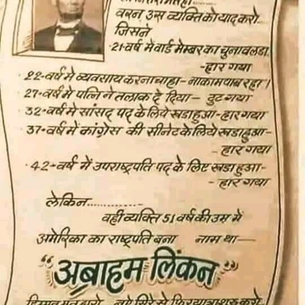 वरन् उस व्यक्ति को याद करो
जिसने
-21 वर्ष में वार्ड मेम्बर का चुनाव लडा
-हार गया
-22-वर्ष में व्यवसाय करना चाहा- नाकामयाब रहा।
-27 वर्ष में पत्नि ने तलाक दे दिया- टुट गया
-32-वर्ष में सांसद पद के लिये खडा हुआ-हार गया
-37-वर्ष में कांग्रेस की सीनेट के लिये खडा हुआ-
-हार गया
-42-वर्ष में उपराष्ट्रपति पद के लिए खडा हुआ-
-हार गया
लेकिन.........
वही व्यक्ति 51 वर्ष की उम्र में
अमेरिका का राष्ट्रपति बना नाम था-
"अब्राहम लिंकन"